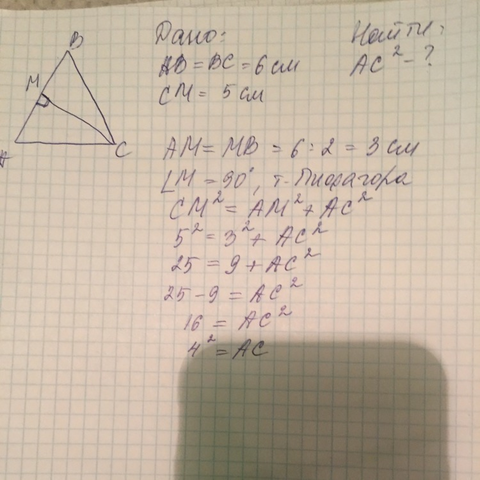 Дано:
AB = BC = 6 см
CM = 5 см
Найти:
AC² - ?
B
M
A
C
AM = MB = 6 : 2 = 3 см
∠M = 90°, т. Пифагора
CM² = AM² + AC²
5² = 3² + AC²
25 = 9 + AC²
25 - 9 = AC²
16 = AC²
4² = AC